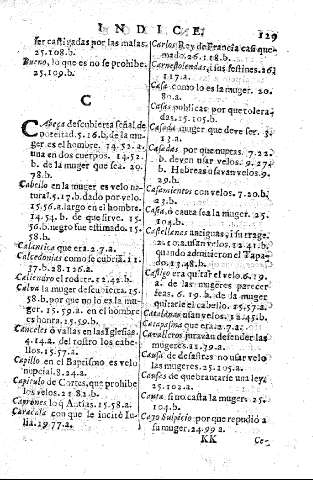 INDICE.
129
ser castigadas por las malas.
25.108.b.
Bueno, lo que es no se prohibe.
25.109.b.
C
Cabeça descubierta señal de
potestad. 5.16.b. de la mu-
ger es el hombre. 14.52.a.
una en dos cuerpos. 14.52.
b. de la muger que sea. 20.
78.b.
Cabello en la muger es velo na-
tural. 5.17.b. dado por velo.
15.56.a. largo en el hombre.
14.54.b. de que sirve. 15.
56.b. negro fue estimado. 15.
58.b.
Calantica que era. 2.7.a.
Calcedonias como se cubriã. 11.
37.b. 28.126.a.
Caliendro el rodete. 12.42.b.
Calva la muger descubierta. 15.
58.b. por que no lo es la mu-
ger. 15.59.a. en el hombre
es honra. 15.59.b.
Canceles ò vallas en las Iglesias.
4.14.a. del rostro los cabe-
llos. 15.57.a.
Capillo en el Baptismo es velo
nupcial. 8.24.a.
Capitulo de Cortes, que prohibe
los velos. 21.82.b.
Caprones lo q̃ Antias. 15.58.a.
Caracala con que le incitò Iu-
lia. 19.77.a.
Carlos Rey de Francia casi que-
mado. 26.118.b.
Carnestolendas, i sus festines. 26.
117.a.
Casa como lo es la muger. 20.
80.a.
Casas publicas por que tolera-
das. 25.105.b.
Casada muger que deve ser. 3.
13.a.
Casadas por que nuptas. 7.22.
b. deven usar velos. 9.27.
b. Hebreas usavan velos. 9.
29.b.
Casamientos con velos. 7.20.b.
23.b.
Casta, ò cauta sea la muger. 25.
104.b.
Castellanas antiguas, i su trage.
2.10.a. usan velos. 12.41.b.
quando admitieron el Tapa-
do. 13.48.b.
Castigo era quitar el velo. 6.19.
a. de las mugeres parecer
feas. 6.19.b. de la muger
quitarle el cabello. 15.57.a.
Catalanas usan velos. 12.45.b.
Catapasma que era. 2.7.a.
Cavalleros juravan defender las
mugeres. 11.39.a.
Causa de desastres no usar velo
las mugeres. 25.105.a.
Causas de quebrantarse una ley.
25.102.a.
Cauta, si no casta la muger. 25.
104.b.
Cayo Sulpicio por que repudiò a
su muger. 24.99.a.
KK
Ce-